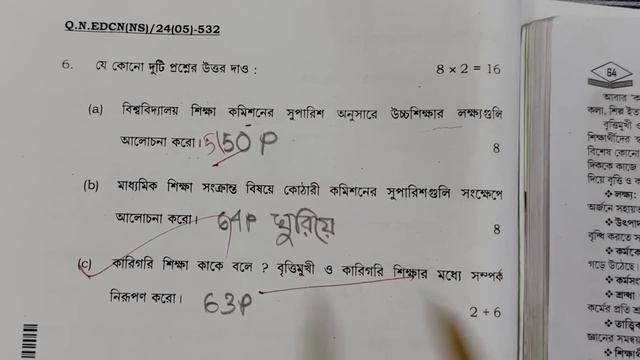 Q.N.EDCN(NS)/24(05)-532
6. যে কোনো দুটি প্রশ্নের উত্তর দাও : 8 × 2 = 16
(a) বিশ্ববিদ্যালয় শিক্ষা কমিশনের সুপারিশ অনুসারে উচ্চশিক্ষার লক্ষ্যগুলি
আলোচনা করো। 50 P 8
(b) মাধ্যমিক শিক্ষা সংক্রান্ত বিষয়ে কোঠারী কমিশনের সুপারিশগুলি সংক্ষেপে
আলোচনা করো। 64P ঘুরিয়ে 8
(c) কারিগরি শিক্ষা কাকে বলে ? বৃত্তিমুখী ও কারিগরি শিক্ষার মধ্যে সম্পর্ক
নিরূপণ করো। 63P 2 + 6
64
আবার
কলা, শিল্প
বৃত্তিমুখী
শিক্ষার্থীদের
বিশেষ কোনো
দিককে কাজে
দিয়ে বৃত্তি ও
❖ লক্ষ্য:
অর্জনে সহায়ত
❖ উৎপাদ
বৃদ্ধি করতে
❖ কর্মকে
গড়ে উঠেছে।
❖ কর্মসং
❖ শ্রদ্ধা
কর্মের প্রতি
❖ তাত্ত্বিক
জ্ঞানের
❖ শিক্ষা